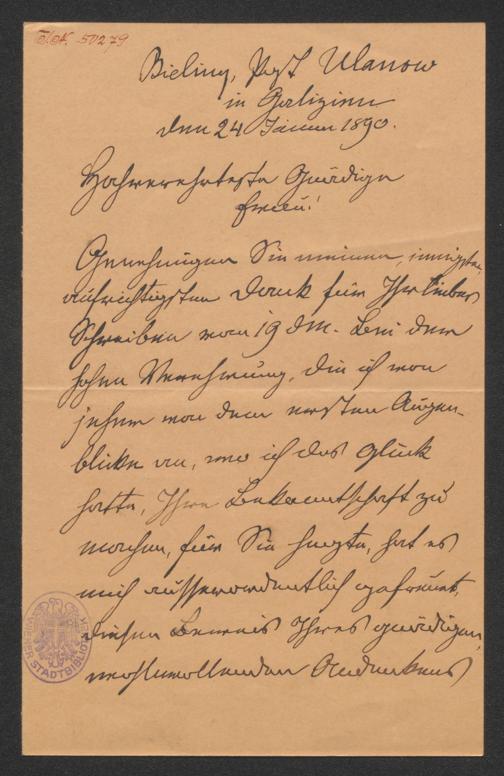 I.N. 50279
Bieliny, Post Ulanow
in Galizien
den 24 Jänner 1890.
Hochverehrteste Gnädige
Frau!
Genehmigen Sie meinen, innigsten,
aufrichtigsten Dank für Ihr liebes
Schreiben vom 19 dM. Bei der
hohen Verehrung, die ich von
jeher von dem ersten Augen-
blicke an, wo ich das Glück
hatte, Ihre Bekanntschaft zu
machen, für Sie hegte, hat es
mich ausserordentlich gefreut,
diesen Beweis Ihres gnädigen,
wohlwollenden Andenkens
WIENER STADTBIBLIOTHEK